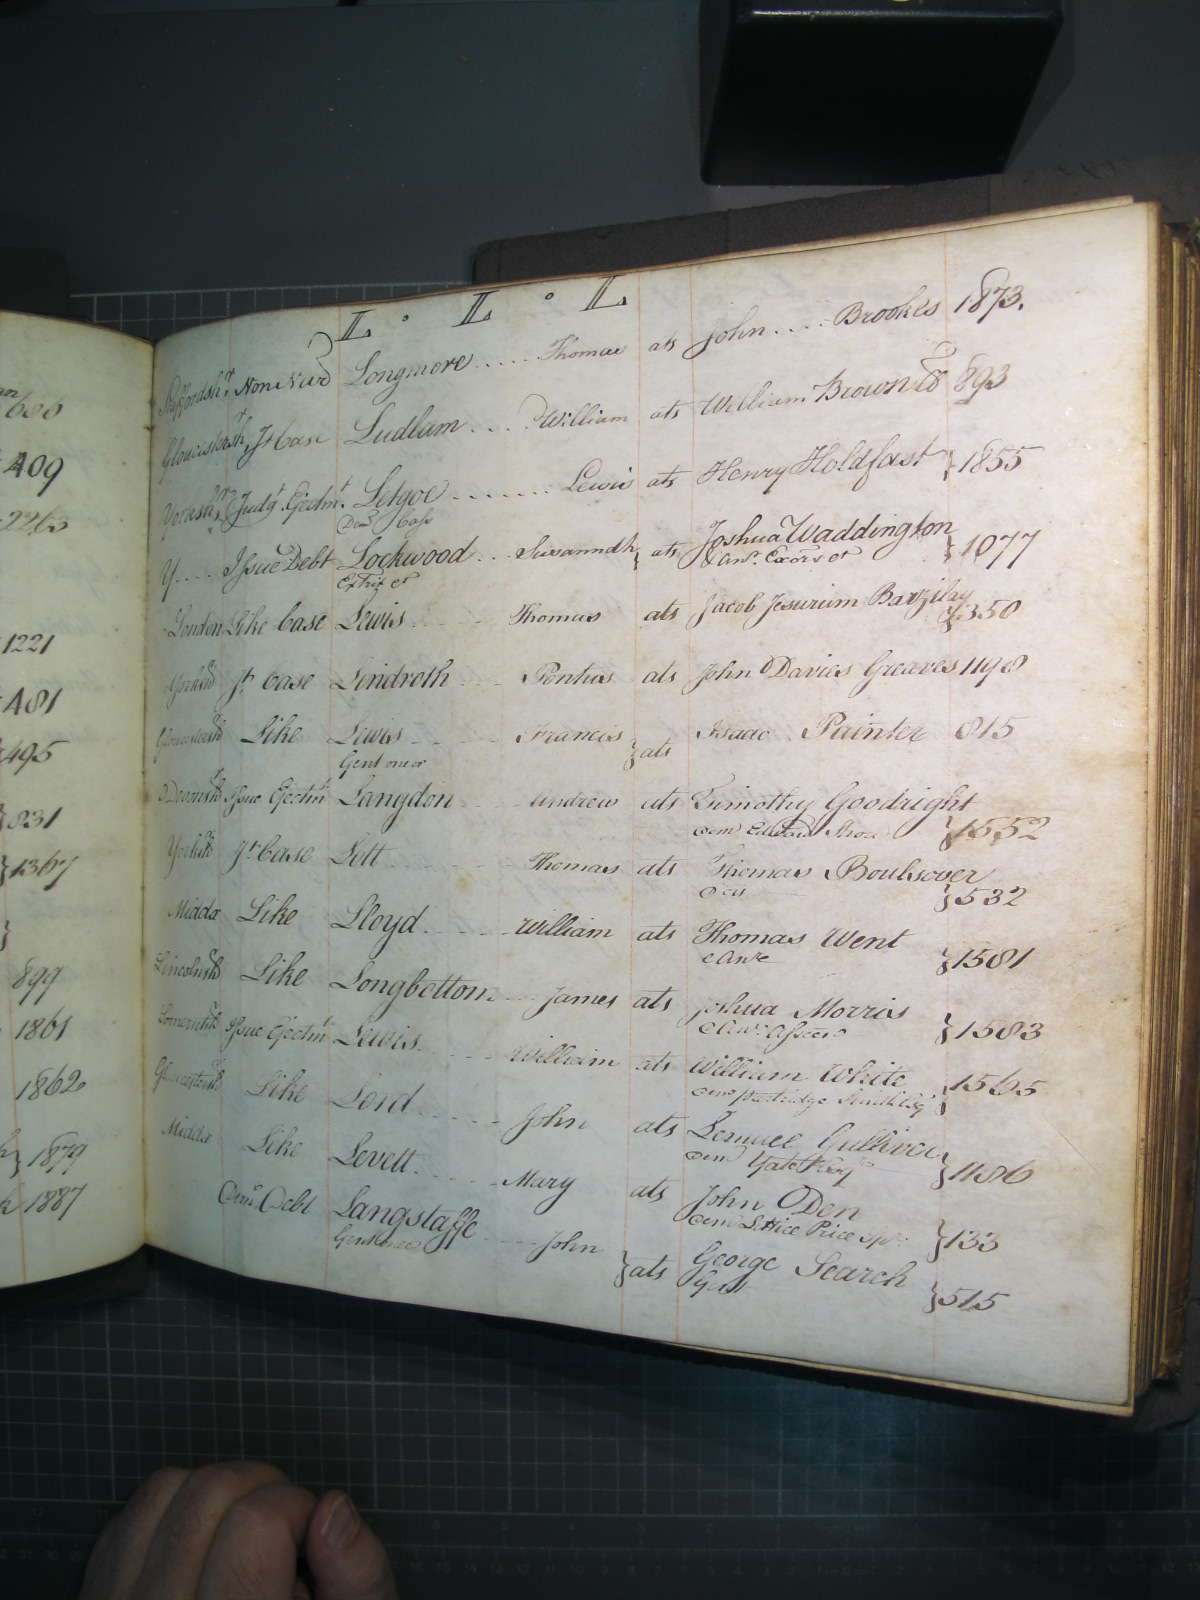 686
409
2263
1221
481
495
}831
}1367
}
899
1861
1862
} 1879
1887
L · L · L
Staffordshr Non Nard Longmore..... Thomas ats John .... Brookes 1873.
Gloucestersh Jt Case Ludlam.... William ats William Brown 893
Yorkshr Judgt Ejectmt ....... Lewis ats Henry Holdfast } 1855
Y.... Issue Debt Lockwood .. Susannah } ats Joshua Waddington
Extrix & } 1077
London Like Case Lewis Thomas ats Jacob Jesurum Barzilay
} 350
Yorksh Jt Case Lindroth Pontus ats John Davies Greaves 1198
Gloucestersh Like Lewis Francis } ats Isaac Painter 815
Gent one &
Issue Ejectmt Langdon Andrew ats Timothy Goodright
dem } 1552
Yorksh Jt Case Lott Thomas ats Thomas Boulsover
} 532
Middx Like Lloyd William ats Thomas Went
& Anr } 1581
Lincolnsh Like Longbottom James ats Joshua Morris
} 1583
Somersetsh Issue Ejectmt Lewis William ats William White
dem Partridge Smith Esqr } 1565
Gloucestersh Like Lord John ats Lemuel Gulliver
dem } 1186
Middx Like Levett Mary ats John Den
dem Lettice Price Spr } 133
Debt Langstaffe John } ats George Search
Gent } 515